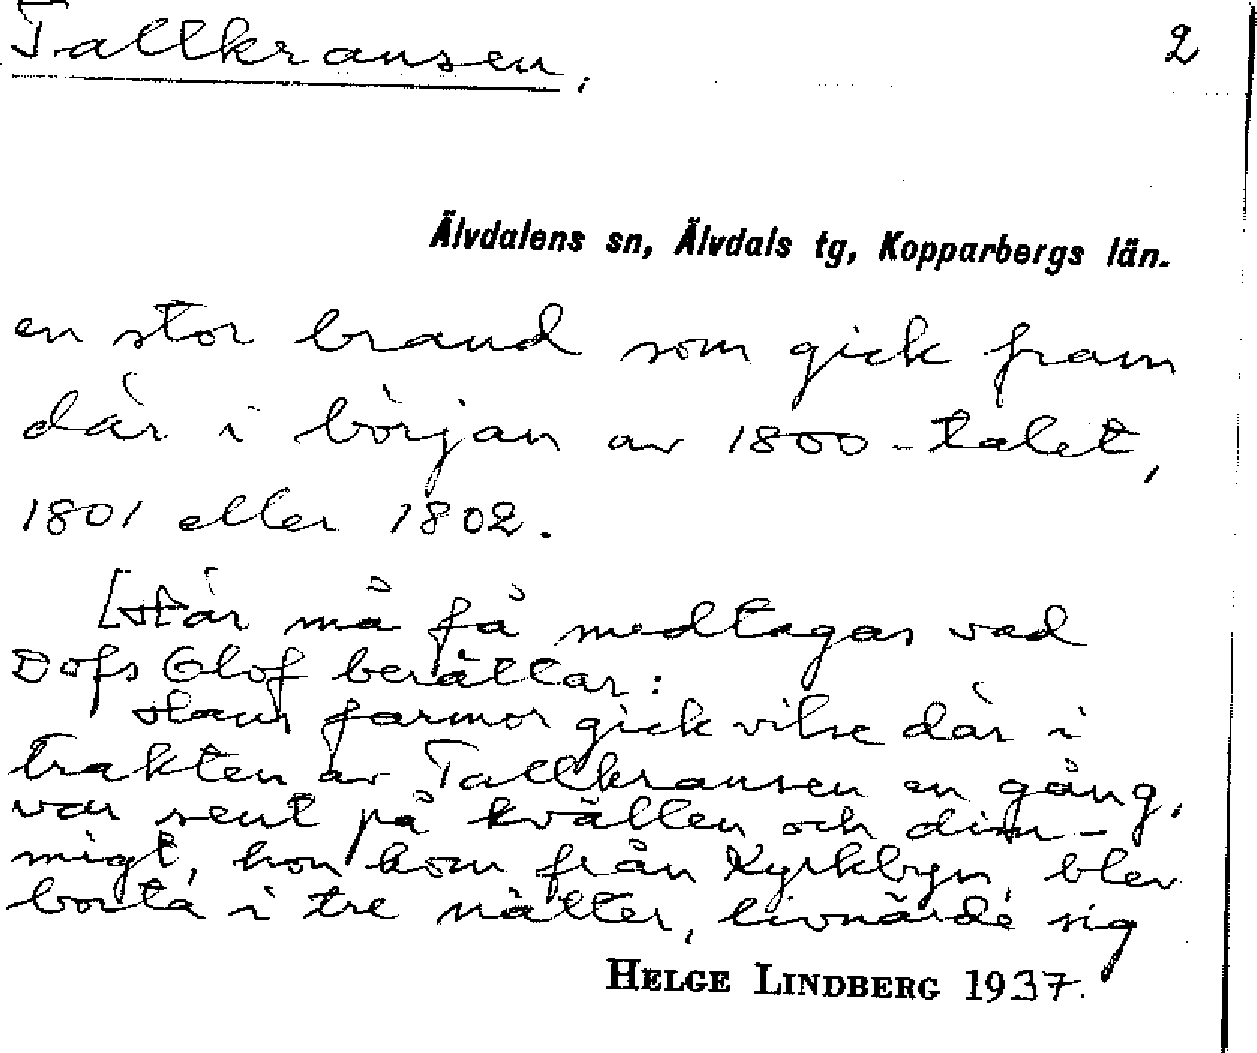 Tallkransen. 2
Älvdalens sn, Älvdals tg, Kopparbergs län.
en stor brand som gick fram
där i början av 1800-talet,
1801 eller 1802.
[Här må få medtagas vad
Dofs Olof berättar:
Hans farmor gick vilse där i
trakten av Tallkransen en gång,
var sent på kvällen och dim-
migt, hon kom från Kyrkbyn, blev
borta i tre nätter, livnärde sig
HELGE LINDBERG 1937.